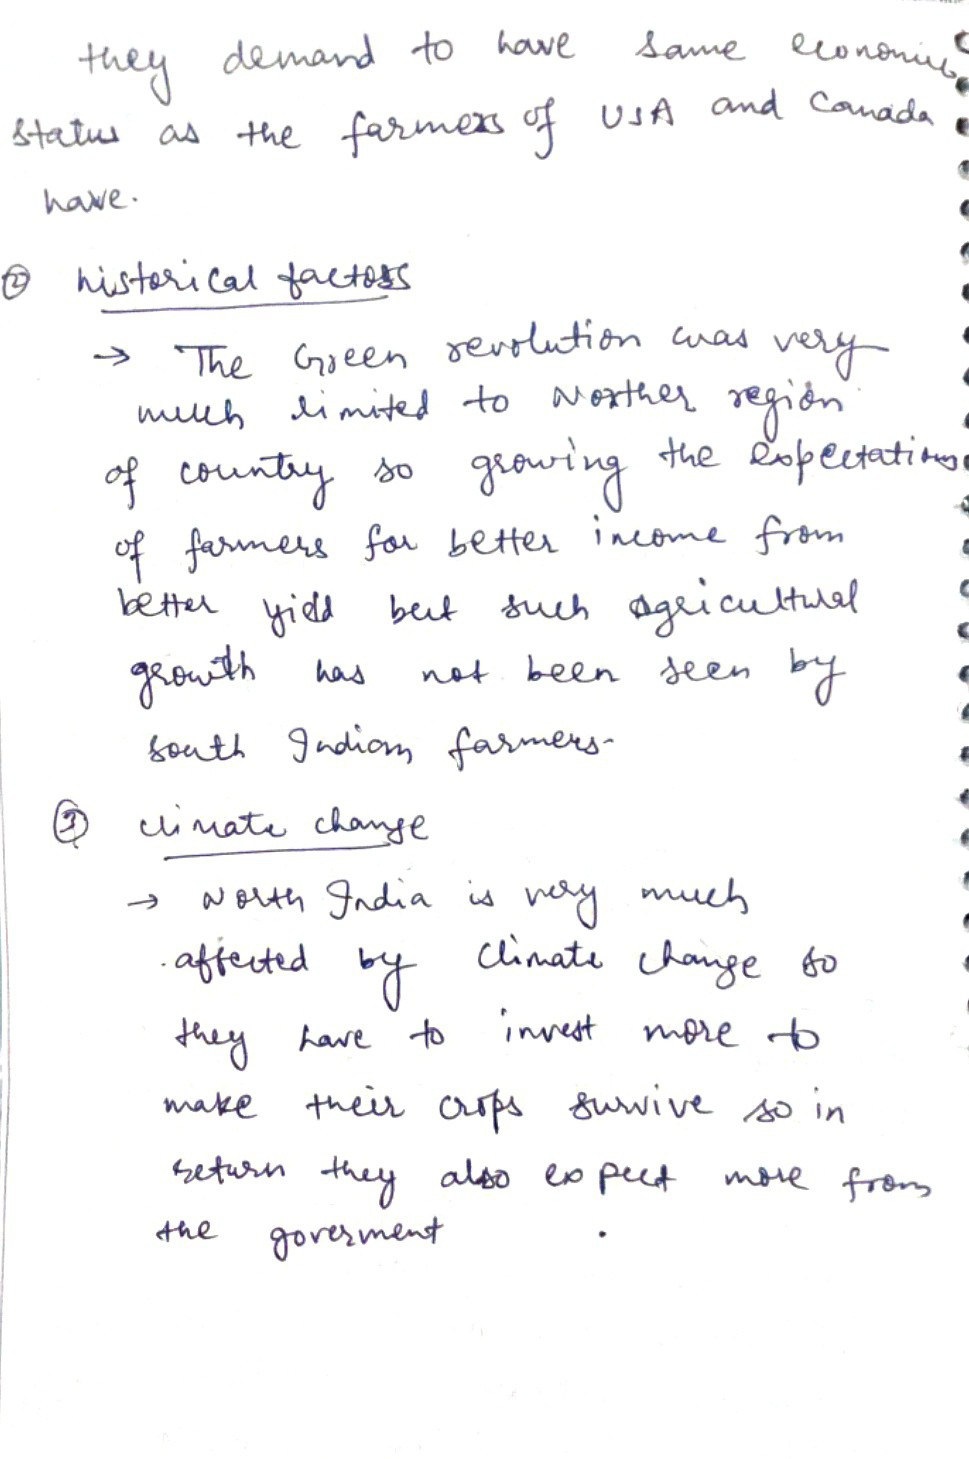 they demand to have same economic
status as the farmers of USA and Canada
have.
② historical factors
→ The Green revolution was very
much limited to Norther region
of country so growing the expectations
of farmers for better income from
better yield but such agricultural
growth has not been seen by
south Indian farmers.
③ climate change
→ North India is very much
affected by climate change so
they have to invest more to
make their crops survive so in
return they also expect more from
the goverment .